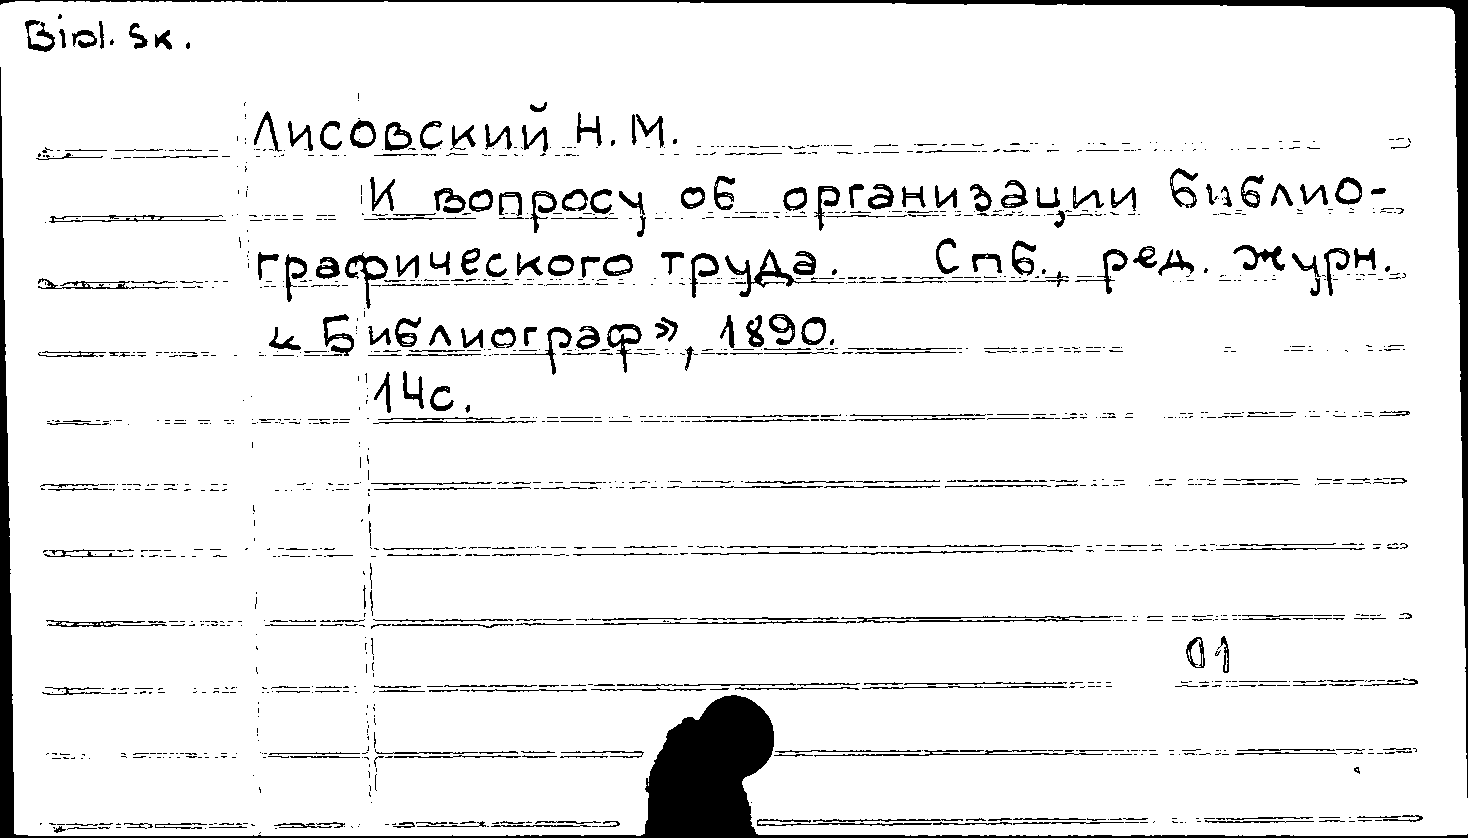 Bibl. Sk.
Лисовский Н. М.
К вопросу об организации библио-
графического труда. Спб., ред. журн.
«Библиограф», 1890.
14с.
01